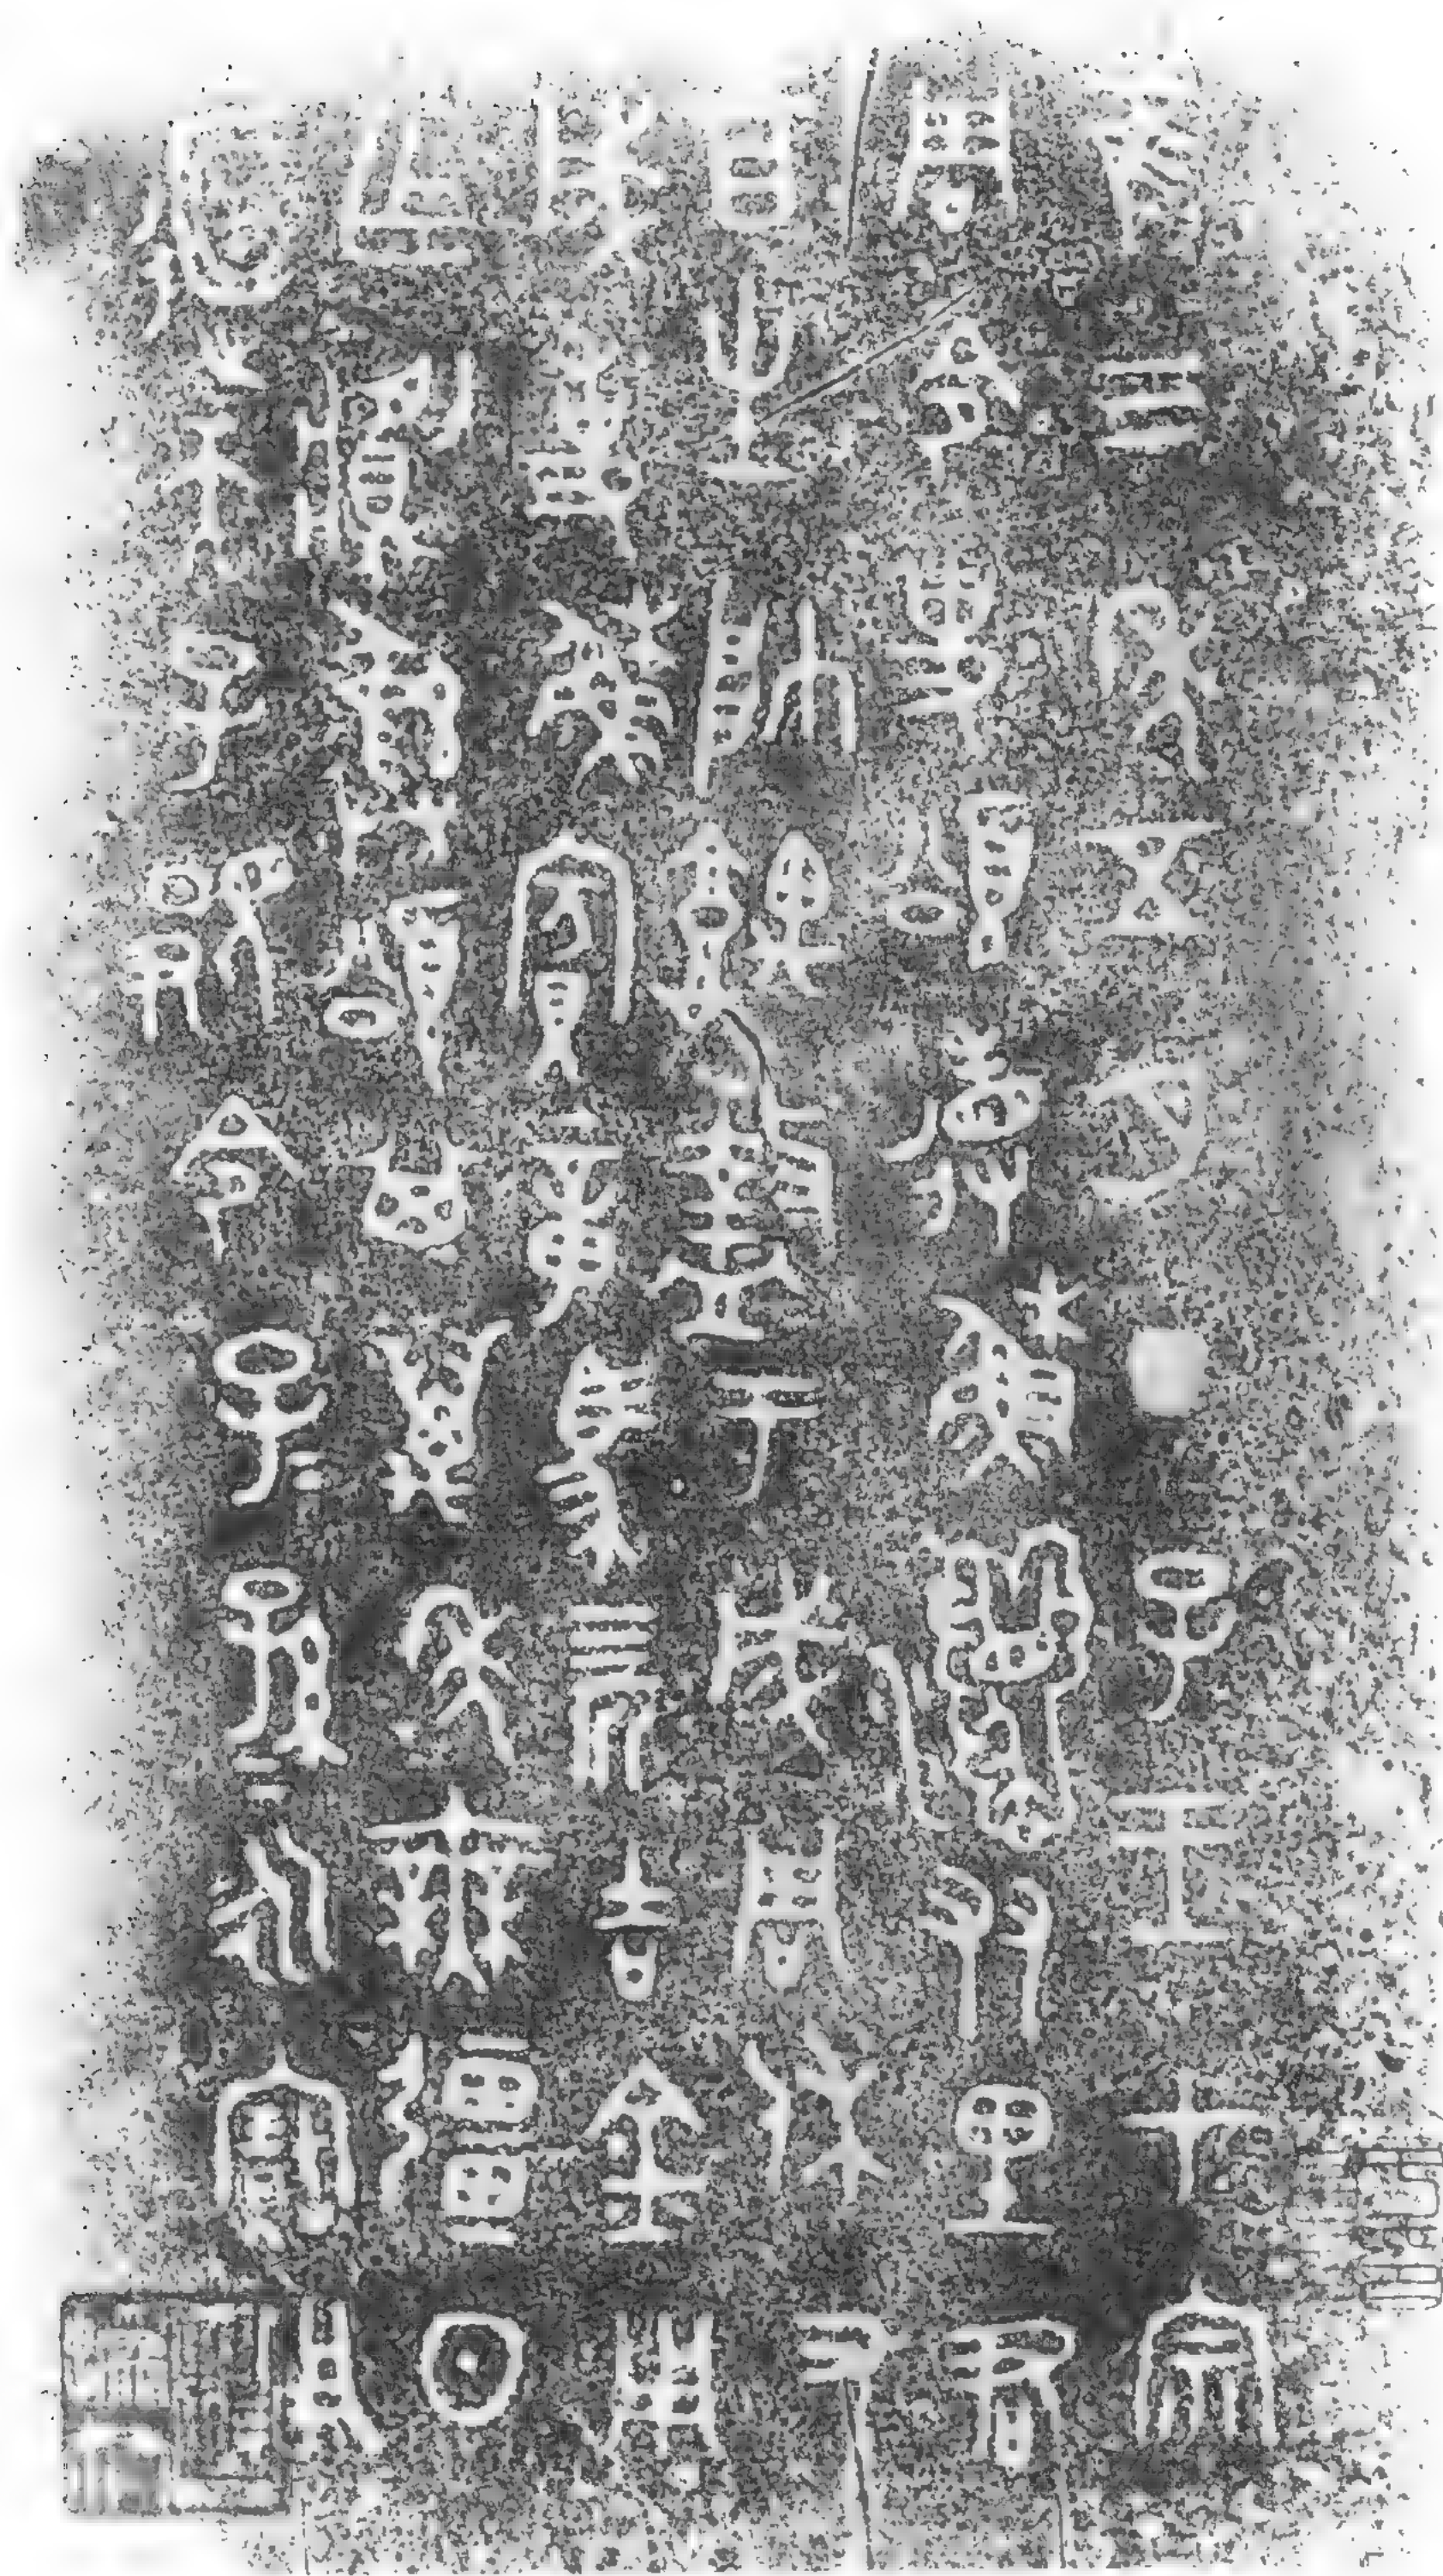 隹三年五月丁子王才宗
周令史頌省穌友里君
百生帥堣盩于成周休又
成事穌賓章馬四匹吉金用
乍彝頌其萬年=無疆日
天子令子=孫=永寶用